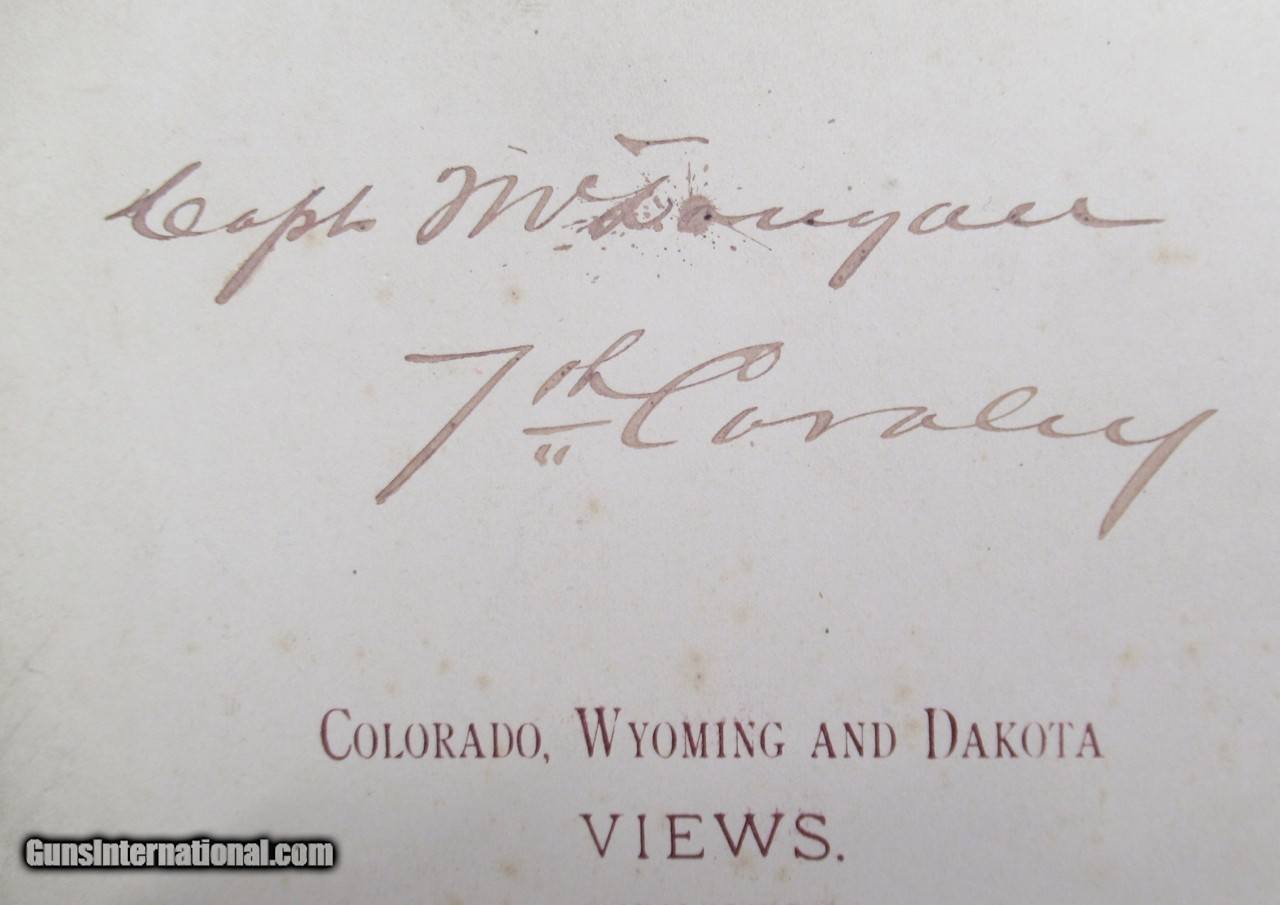 Capt McDougall
7th Cavalry
COLORADO, WYOMING AND DAKOTA
VIEWS.
GunsInternational.com